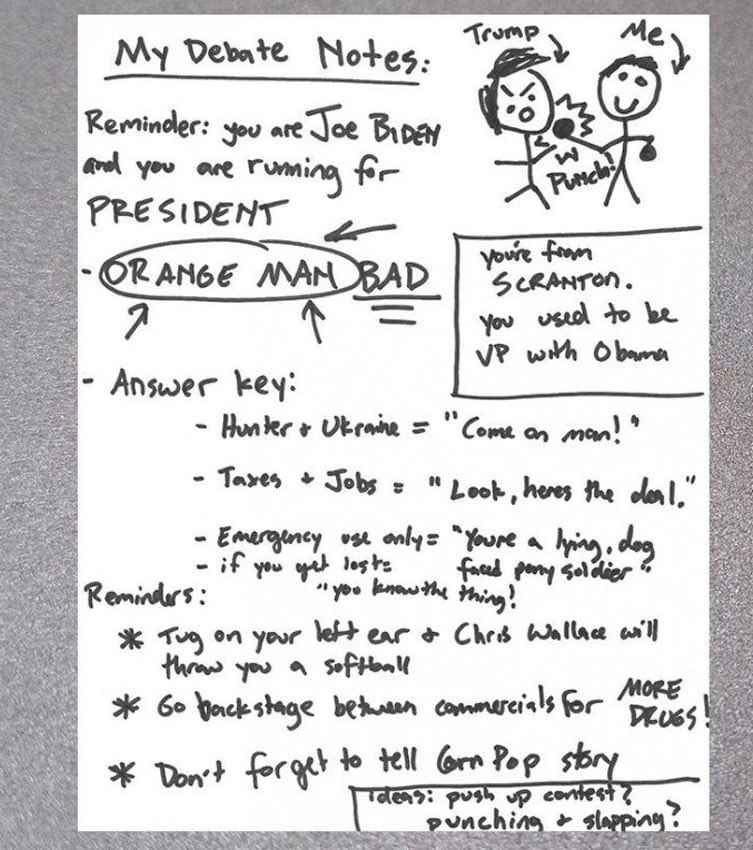 My Debate Notes:
Trump
Me
Punch!
Reminder: you are Joe BIDEN
and you are running for
PRESIDENT
- ORANGE MAN BAD
you're from
SCRANTON.
you used to be
VP with Obama
- Answer key:
- Hunter + Ukraine = "Come on man!"
- Taxes + Jobs = "Look, heres the deal."
- Emergency use only = "You're a lying, dog
faced pony soldier"
- if you get lost = "you know the thing!
Reminders:
* Tug on your left ear + Chris Wallace will
throw you a softball
* Go backstage between commercials for MORE
DRUGS!
* Don't forget to tell Corn Pop story
ideas: push up contest?
punching + slapping?